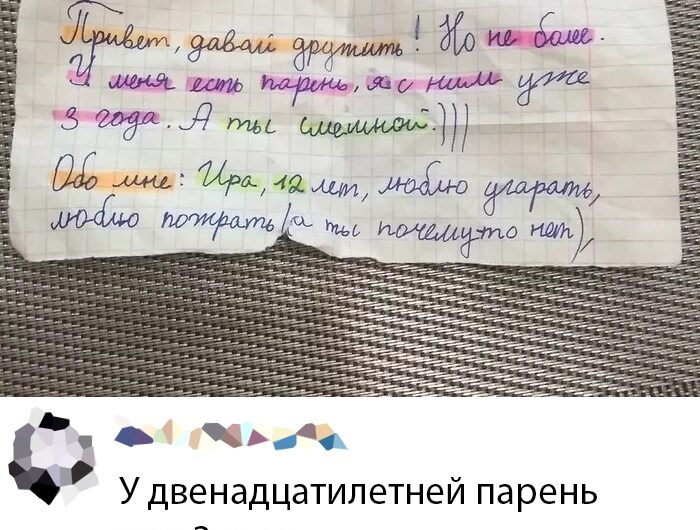 Привет, давай дружить! Но не более.
У меня есть парень, я с ним уже
3 года. А ты смешной)))
Обо мне: Ира, 12 лет, люблю угарать,
люблю пожрать (а ты почему-то нет),
У двенадцатилетней парень